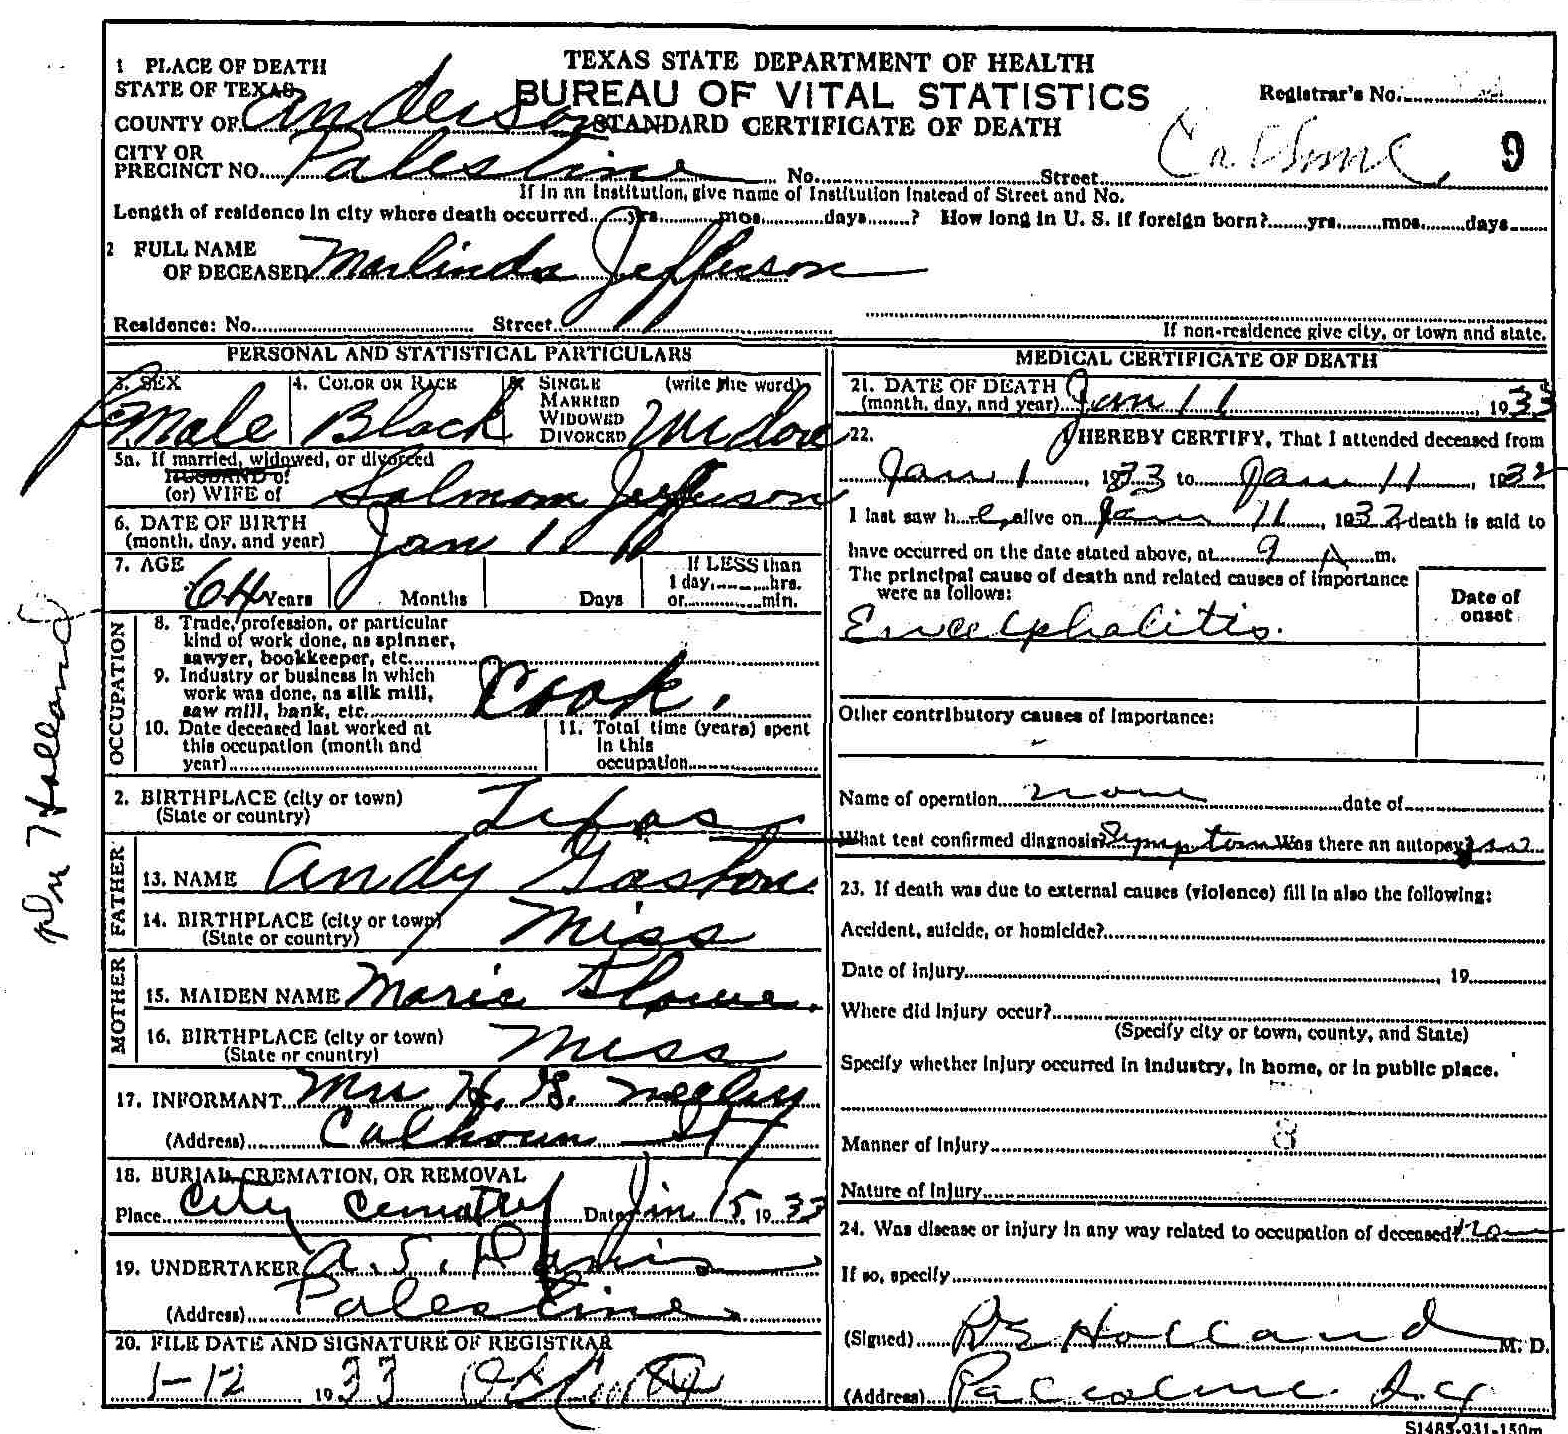 TEXAS STATE DEPARTMENT OF HEALTH
BUREAU OF VITAL STATISTICS
STANDARD CERTIFICATE OF DEATH
Registrar's No.
9
1 PLACE OF DEATH
STATE OF TEXAS
COUNTY OF Anderson
CITY OR
PRECINCT NO. Palestine No. Street
If in an institution, give name of Institution instead of Street and No.
Length of residence in city where death occurred yrs. mos. days ? How long in U. S. if foreign born? yrs. mos. days
2 FULL NAME
OF DECEASED Marlinda Jefferson
Residence: No. Street
If non-residence give city, or town and state.
PERSONAL AND STATISTICAL PARTICULARS
3. SEX Female
4. COLOR OR RACE Black
5. SINGLE MARRIED WIDOWED DIVORCED (write the word) Widow
5a. If married, widowed, or divorced
HUSBAND of
(or) WIFE of Solmom Jefferson
6. DATE OF BIRTH
(month, day, and year) Jan 1
7. AGE 64 Years Months Days If LESS than 1 day, hrs. or min.
OCCUPATION
8. Trade, profession, or particular
kind of work done, as spinner,
sawyer, bookkeeper, etc.
9. Industry or business in which
work was done, as silk mill,
saw mill, bank, etc. Cook.
10. Date deceased last worked at
this occupation (month and
year)
11. Total time (years) spent
in this
occupation
2. BIRTHPLACE (city or town)
(State or country) Texas
FATHER
13. NAME Andy Gaston
14. BIRTHPLACE (city or town)
(State or country) Miss
MOTHER
15. MAIDEN NAME Marie
16. BIRTHPLACE (city or town)
(State or country) Miss
17. INFORMANT Mrs H. G.
(Address) Calhoun St
18. BURIAL, CREMATION, OR REMOVAL
Place City Cemetery Date Jan 15, 1933
19. UNDERTAKER A. S. Davis
(Address) Palestine
20. FILE DATE AND SIGNATURE OF REGISTRAR
1-12 1933
MEDICAL CERTIFICATE OF DEATH
21. DATE OF DEATH
(month, day, and year) Jan 11, 1933
22. I HEREBY CERTIFY, That I attended deceased from
Jan 1, 1933 to Jan 11, 1932
I last saw her alive on Jan 11, 1933 death is said to
have occurred on the date stated above, at 9 A m.
The principal cause of death and related causes of importance
were as follows:
Date of
onset
Encephalitis.
Other contributory causes of importance:
Name of operation none date of
What test confirmed diagnosis? Symptom Was there an autopsy?
23. If death was due to external causes (violence) fill in also the following:
Accident, suicide, or homicide?
Date of injury , 19
Where did injury occur?
(Specify city or town, county, and State)
Specify whether injury occurred in industry, in home, or in public place.
Manner of injury 8
Nature of injury
24. Was disease or injury in any way related to occupation of deceased? no
If so, specify
(Signed) Holland M. D.
(Address) Palestine
S1485-931-150m
Holland